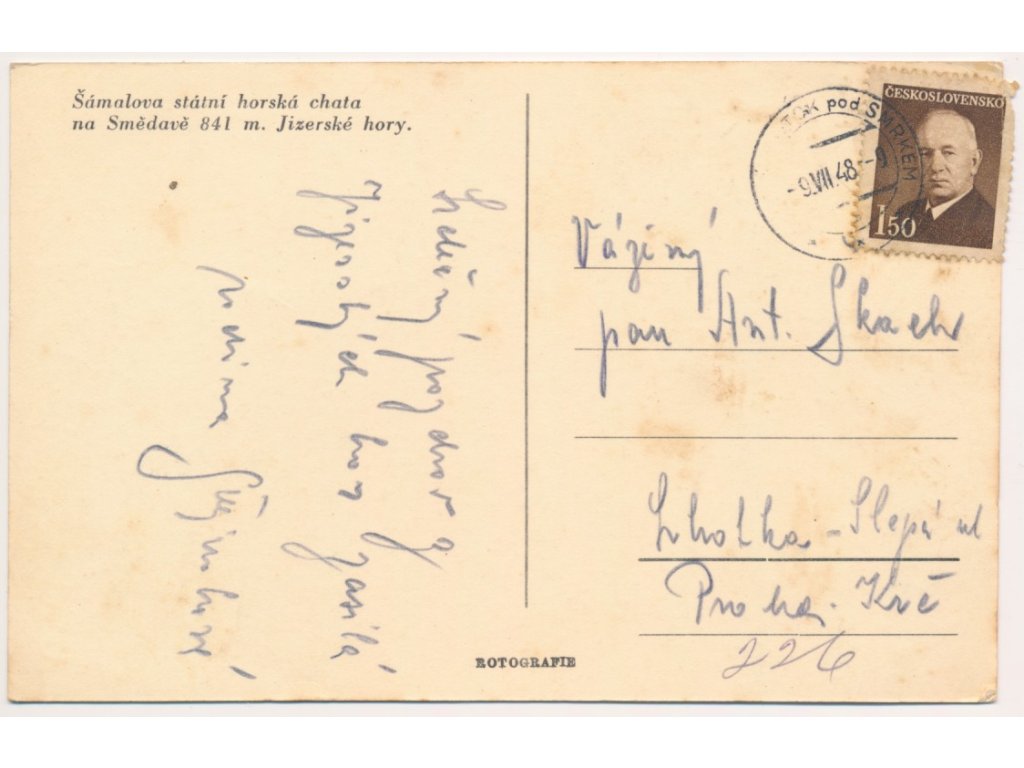 Šámalova státní horská chata
na Smědavě 841 m. Jizerské hory.
Srdečný pozdrav z
Jizerských hor zasílá
rodina
ČESKOSLOVENSKO
150
TOK pod SMRKEM
-9.VII.48-9
Vážený
pan Ant. Skach
Lhotka - Slepá ul
Praha. Krč
226
ROTOGRAFIE